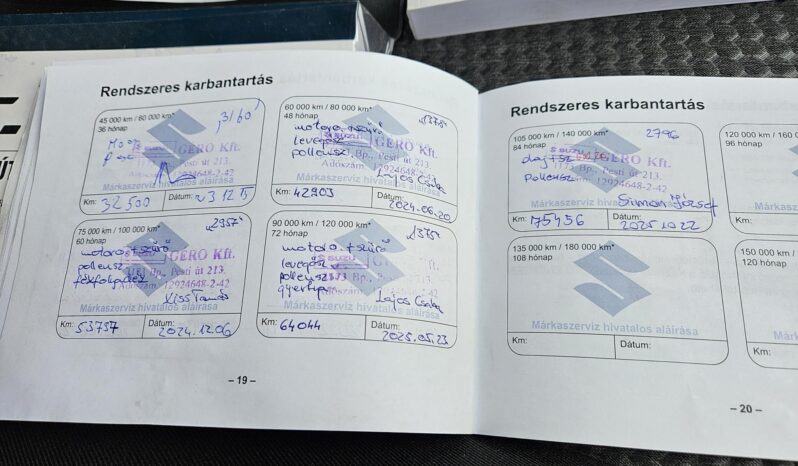 Rendszeres karbantartás
45 000 km / 60 000 km*
36 hónap
3160
GERŐ Kft.
Pesti út 213.
12924648-2-42
Márkaszerviz hivatalos aláírása
Km: 32 500
Dátum: 23 12 15
60 000 km / 80 000 km*
48 hónap
1375
motoro. + szűrő
levegősz
pollensz
SUZU GERŐ Kft.
Bp., Pesti út 213.
Adószám: 12924648-2-42
Lajos Csaba
Km: 42903
Dátum: 2024.06.20
75 000 km / 100 000 km*
60 hónap
2957
motoro + szűrő
pollensz
fékfoly
GERŐ Kft.
Bp., Pesti út 213.
12924648-2-42
Kiss Tamás
Márkaszerviz hivatalos aláírása
Km: 53737
Dátum: 2024.12.06
90 000 km / 120 000 km*
72 hónap
1375
motoro. + szűrő
levegősz
pollensz
gyertya
Lajos Csaba
Márkaszerviz hivatalos aláírása
Km: 64044
Dátum: 2025.05.23
– 19 –
Rendszeres karbantartás
105 000 km / 140 000 km*
84 hónap
2796
olaj + sz
Pollensz
SUZU GERŐ Kft.
Bp., Pesti út 213.
12924648-2-42
Simon József
Márkaszerviz hivatalos aláírása
Km: 75456
Dátum: 2025 10 22
120 000 km / 160
96 hónap
Km:
135 000 km / 180 000 km*
108 hónap
Márkaszerviz hivatalos aláírása
Km:
Dátum:
150 000 km /
120 hónap
Km:
– 20 –